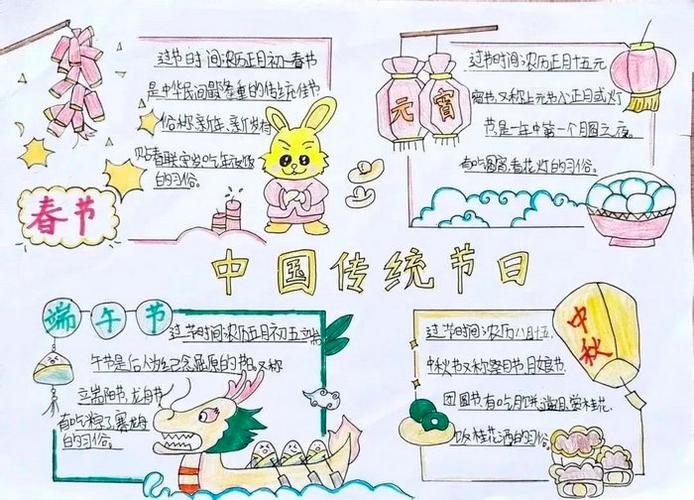 过节时间:农历正月初一春节
是中华民间最隆重的传统佳节
俗称新年、新岁有
贴春联穿发吃年夜饭
的习俗。
春节
过节时间:农历正月十五元
宵节又称上元节小正月或灯
节是一年中第一个月圆之夜。
有吃宵看花灯的习俗。
元
宵
中国传统节日
端午节
过节时间:农历五月初五端
午节是后人为纪念屈原的又称
立端阳节、龙舟节
有吃粽子赛
的习俗。
过节时间:农历八月十五,
中秋节又称祭月节月娘节
团圆节有吃月饼赏桂花
饮桂花酒的习俗。
中秋